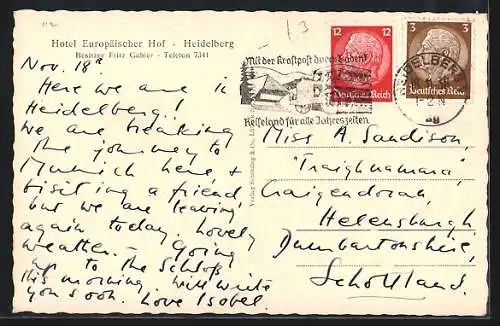 Hotel Europäischer Hof - Heidelberg
Besitzer Fritz Gabler - Telefon 7341
Nov. 18th
Here we are in
Heidelberg!
We are breaking
the journey to
Munich here, &
visiting a friend,
but we are leaving
again today. Lovely
weather. - Going
up to the Schloß
this morning. Will write
you soon. Love Isobel.
12 12
Deutsches Reich
3 3
Deutsches Reich
Mit der Kraftpost durch Baden
Reiseland für alle Jahreszeiten
HEIDELBERG
Miss A. Sandison,
"Traighnamara"
Craigendoran,
Helensburgh,
Dumbartonshire,
Schottland.